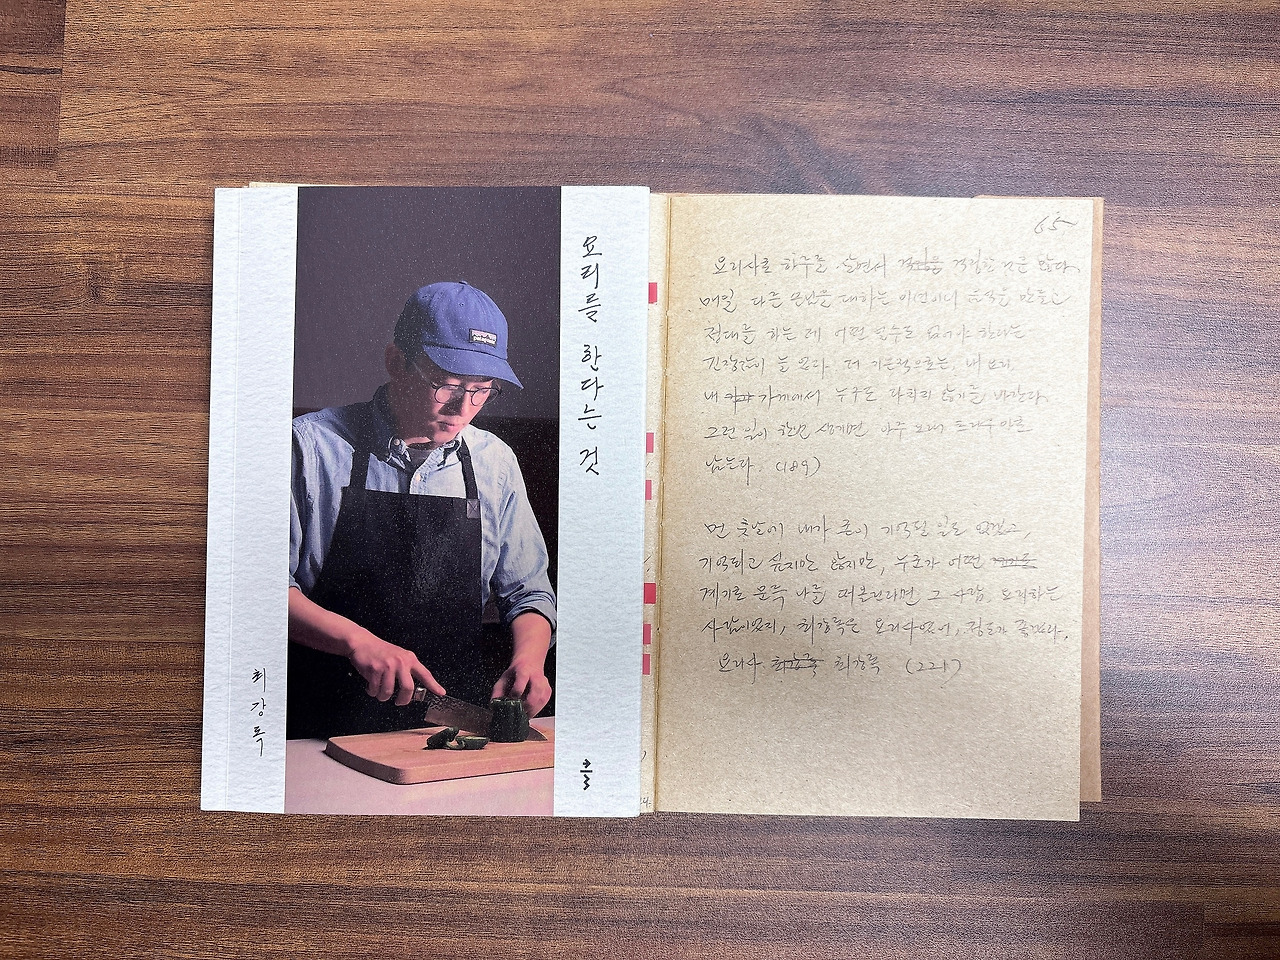 요리를 한다는 것
최강록
클
65
요리사로 하루를 살면서 걱정할 것은 많다.
매일 다른 손님을 대하는 일이니 음식을 만들고
접대를 하는 데 어떤 실수도 없어야 한다는
긴장감이 늘 있다. 더 기본적으로는, 내 요리,
내 가게에서 누구도 다치지 않기를 바란다.
그런 일이 한번 생기면 아주 오래 트라우마로
남는다. (189)
먼 훗날에 내가 혼이 기억될 일도 없겠고,
기억되고 싶지만 않지만, 누군가 어떤
계기로 문득 나를 떠올린다면 그 사람, 요리하는
사람이었지, 최강록은 요리사였어, 정도가 좋겠다.
요리사 최강록 (221)